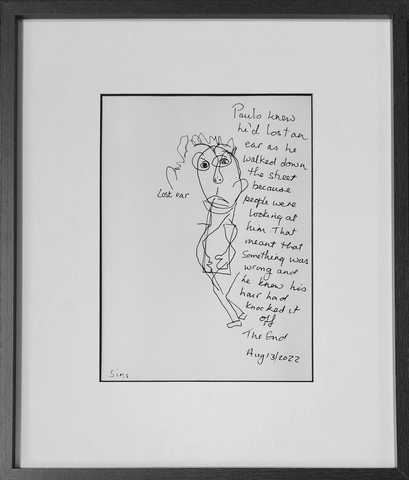 Paulo knew
he'd lost an
ear as he
walked down
the street
because
people were
looking at
him. That
meant that
something was
wrong and
he knew his
hair had
knocked it
off
The End
Aug 13/2022
Lost ear
Sims